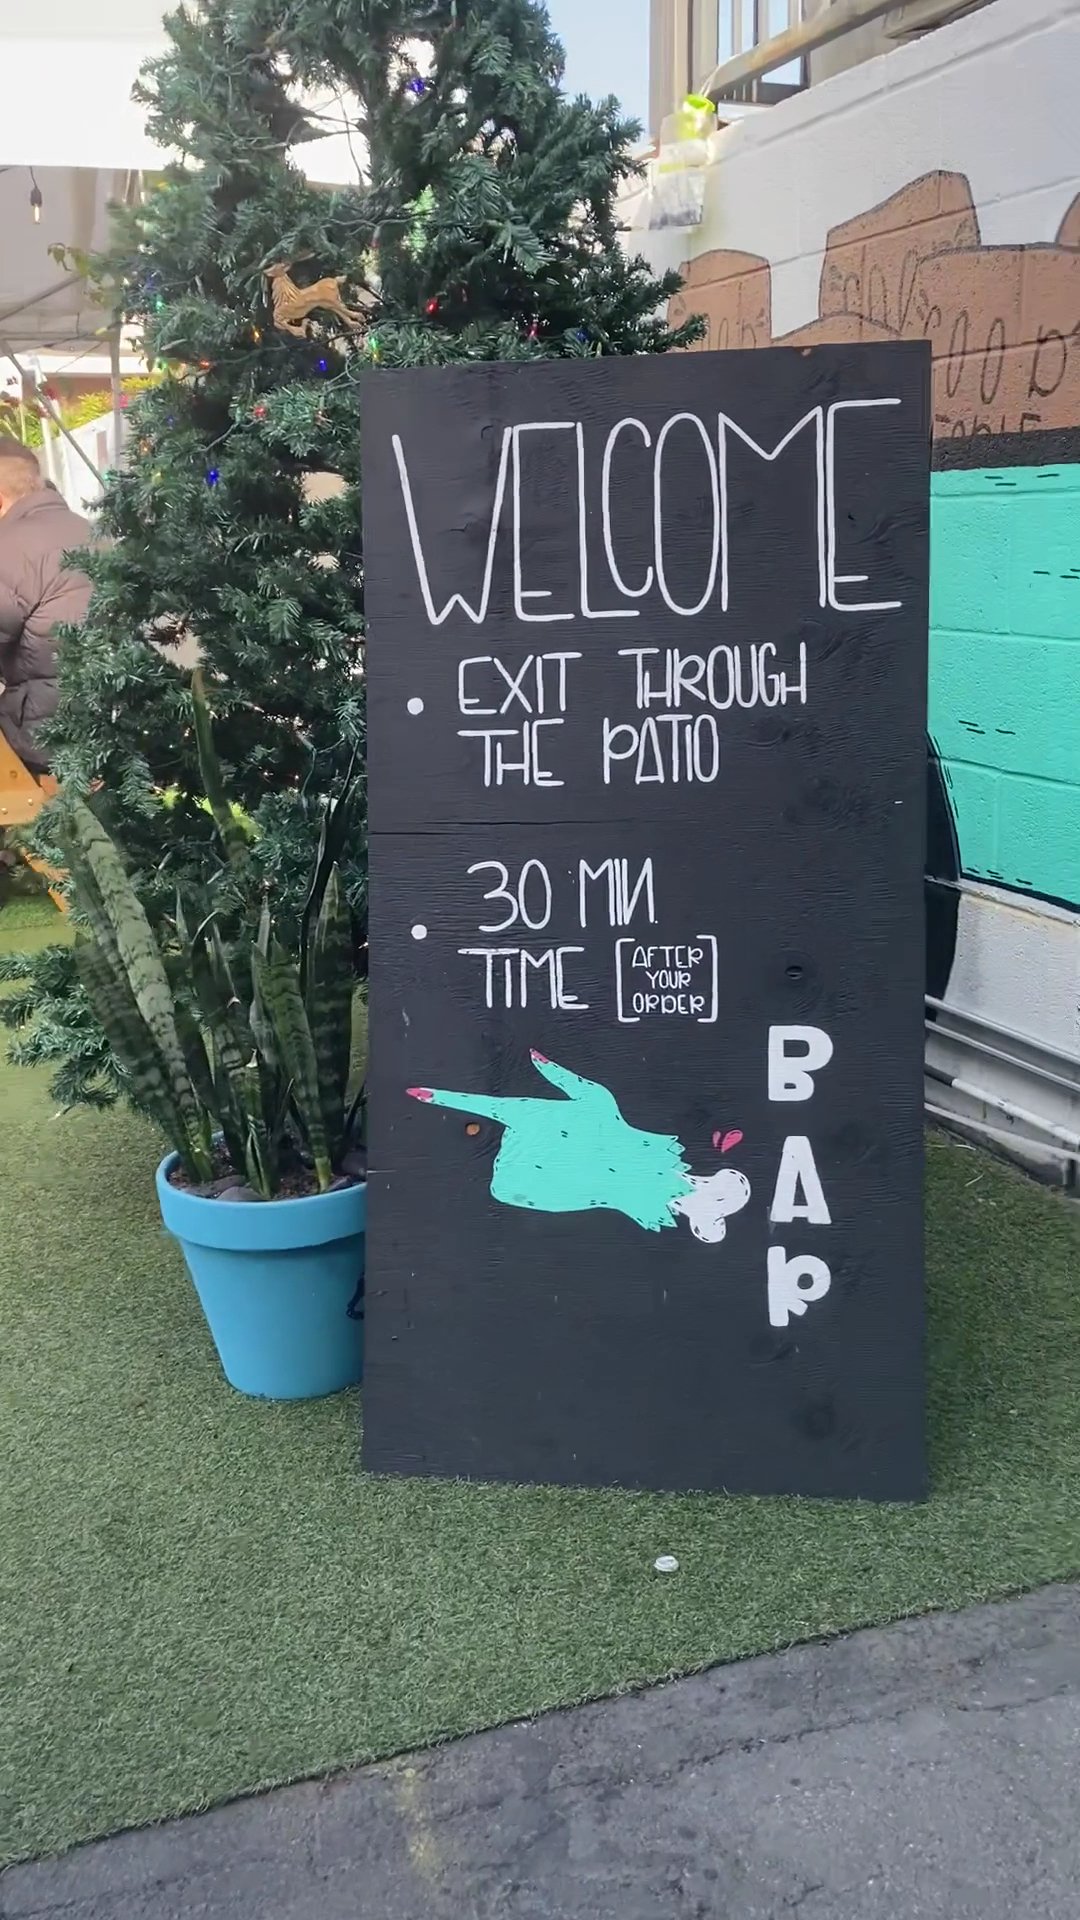 WELCOME
• EXIT THROUGH
THE PATIO
• 30 MIN.
TIME [AFTER
YOUR
ORDER]
BAR